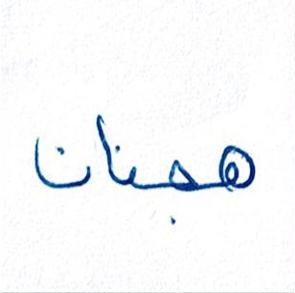 هجنانا